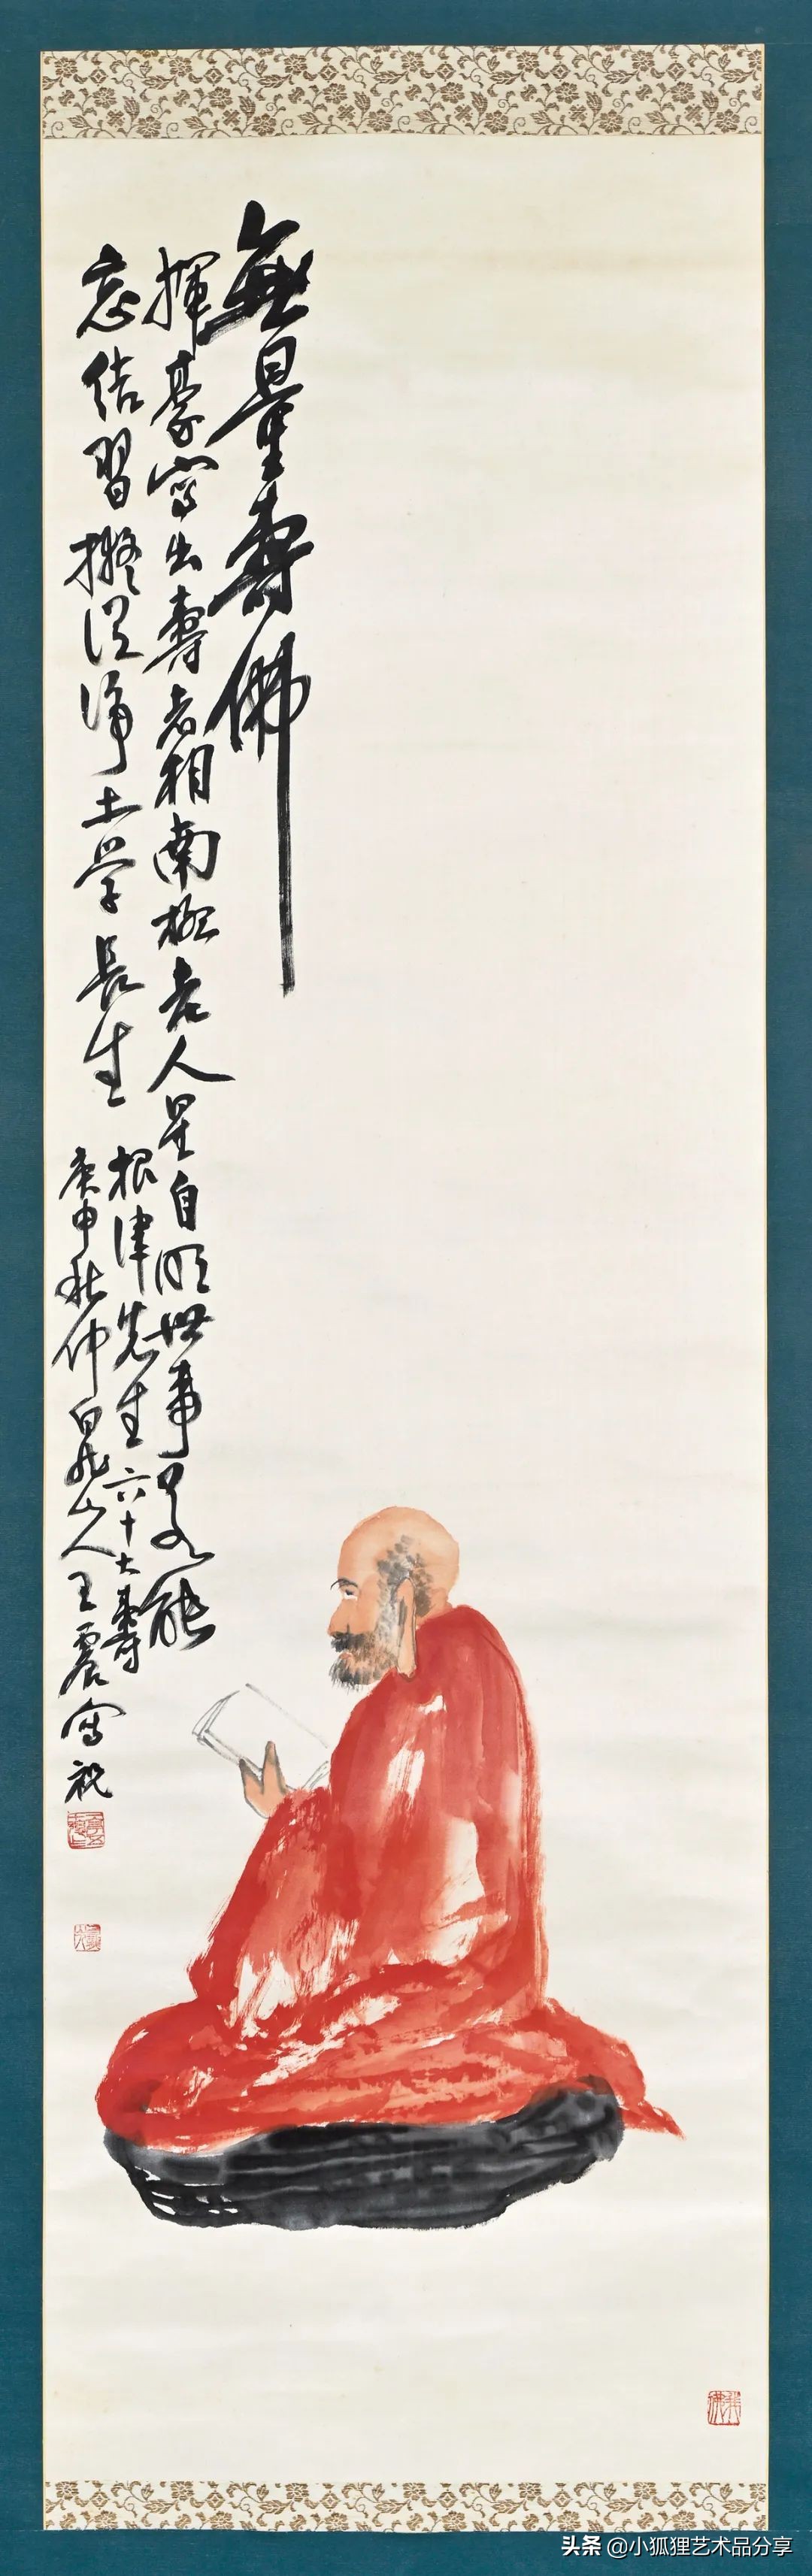 無量壽佛
揮豪寫出壽者相南極老人星自明世事若能
忘結習擬從淨土學長生
根津先生六十大壽
庚申秋仲白龍山人王震寫祝
头条 @小狐狸艺术品分享